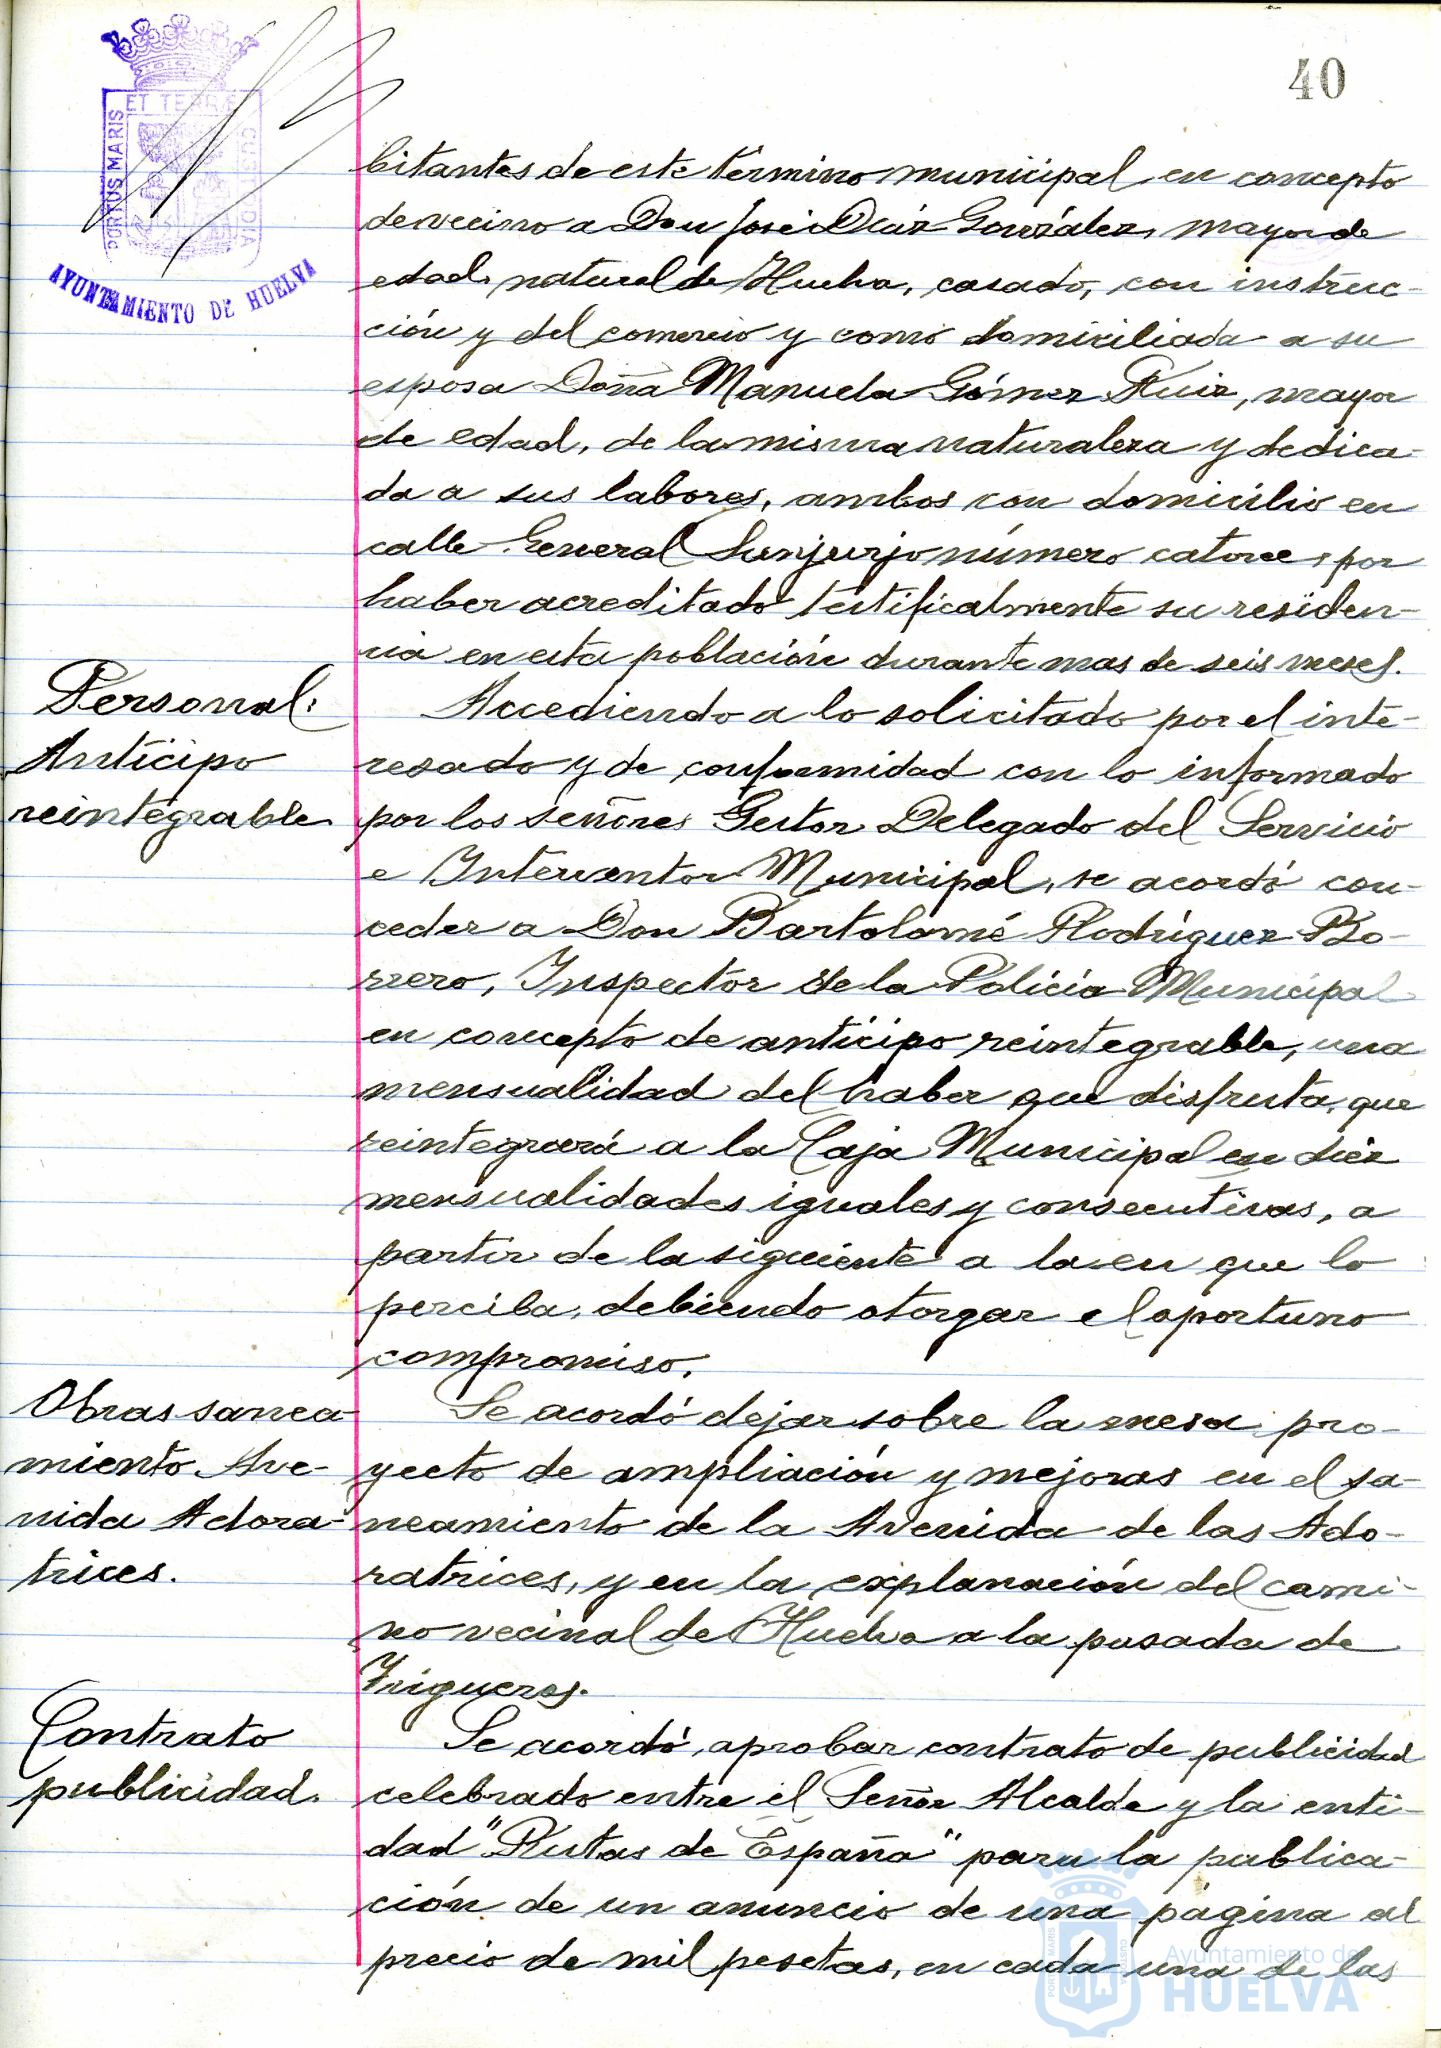 40
PORTUS MARIS ET TERRÆ CUSTODIA
AYUNTAMIENTO DE HUELVA
bitantes de este término municipal en concepto
de vecino a Don José Díaz González, mayor de
edad, natural de Huelva, casado, con instruc-
ción y del comercio y como domiciliada a su
esposa Doña Manuela Gómez Ruiz, mayor
de edad, de la misma naturaleza y dedica-
da a sus labores, ambos con domicilio en
calle General Sanjurjo número catorce, por
haber acreditado testificalmente su residen-
cia en esta población durante mas de seis meses.
Personal:
Anticipo
reintegrable.
Accediendo a lo solicitado por el inte-
resado y de conformidad con lo informado
por los señores Gestor Delegado del Servicio
e Interventor Municipal, se acordó con-
ceder a Don Bartolomé Rodríguez Bo-
rrero, Inspector de la Policía Municipal
en concepto de anticipo reintegrable, una
mensualidad del haber que disfruta, que
reintegrará a la Caja Municipal en diez
mensualidades iguales y consecutivas, a
partir de la siguiente a la en que lo
perciba, debiendo otorgar el oportuno
compromiso.
Obras sanea-
miento Ave-
nida Adora-
trices.
Se acordó dejar sobre la mesa pro-
yecto de ampliación y mejoras en el sa-
neamiento de la Avenida de las Ado-
ratrices, y en la explanación del cami-
no vecinal de Huelva a la pasada de
Trigueros.
Contrato
publicidad.
Se acordó, aprobar contrato de publicidad
celebrado entre el Señor Alcalde y la enti-
dad "Rutas de España" para la publica-
ción de un anuncio de una página al
precio de mil pesetas, en cada una de las
Ayuntamiento de
HUELVA